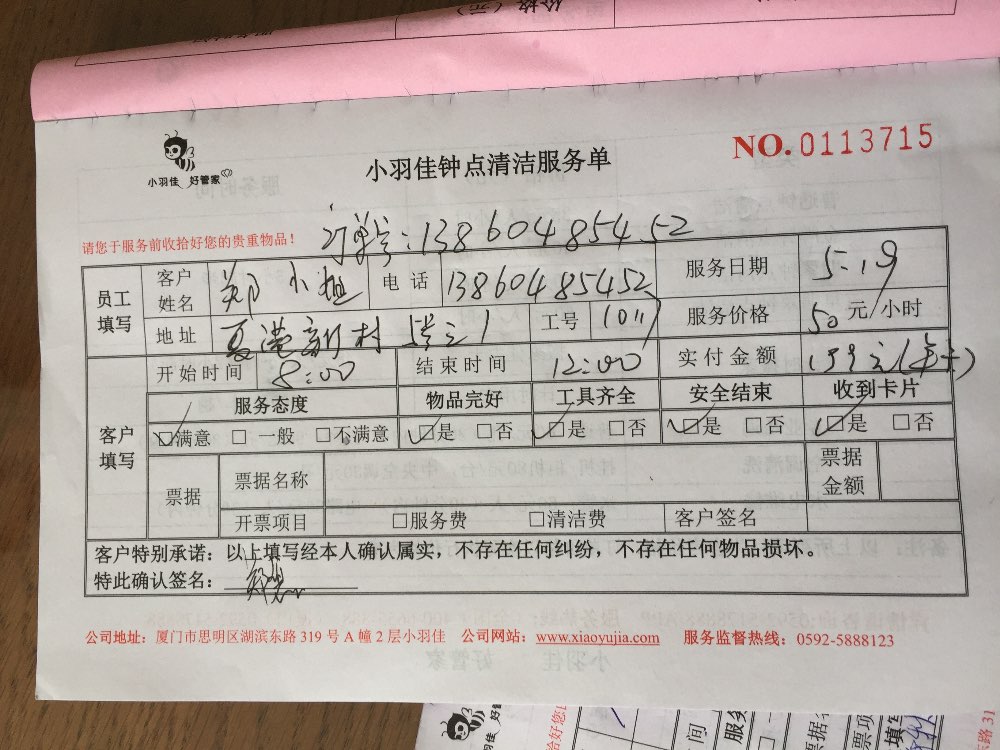 小羽佳 好管家
小羽佳钟点清洁服务单
NO.0113715
请您于服务前收拾好您的贵重物品！
订单号：13860485452
员工填写
客户姓名 郑小姐 电话 13860485452 服务日期 5.19
地址 夏港新村5号之1 工号 1011 服务价格 50元/小时
客户填写
开始时间 8:00 结束时间 12:00 实付金额
服务态度 物品完好 工具齐全 安全结束 收到卡片
☑满意 □一般 □不满意 ☑是 □否 ☑是 □否 ☑是 □否 ☑是 □否
票据 票据名称 票据金额
开票项目 □服务费 □清洁费 客户签名
客户特别承诺：以上填写经本人确认属实，不存在任何纠纷，不存在任何物品损坏。
特此确认签名：
公司地址：厦门市思明区湖滨东路 319 号 A 幢 2 层小羽佳 公司网站：www.xiaoyujia.com 服务监督热线：0592-5888123